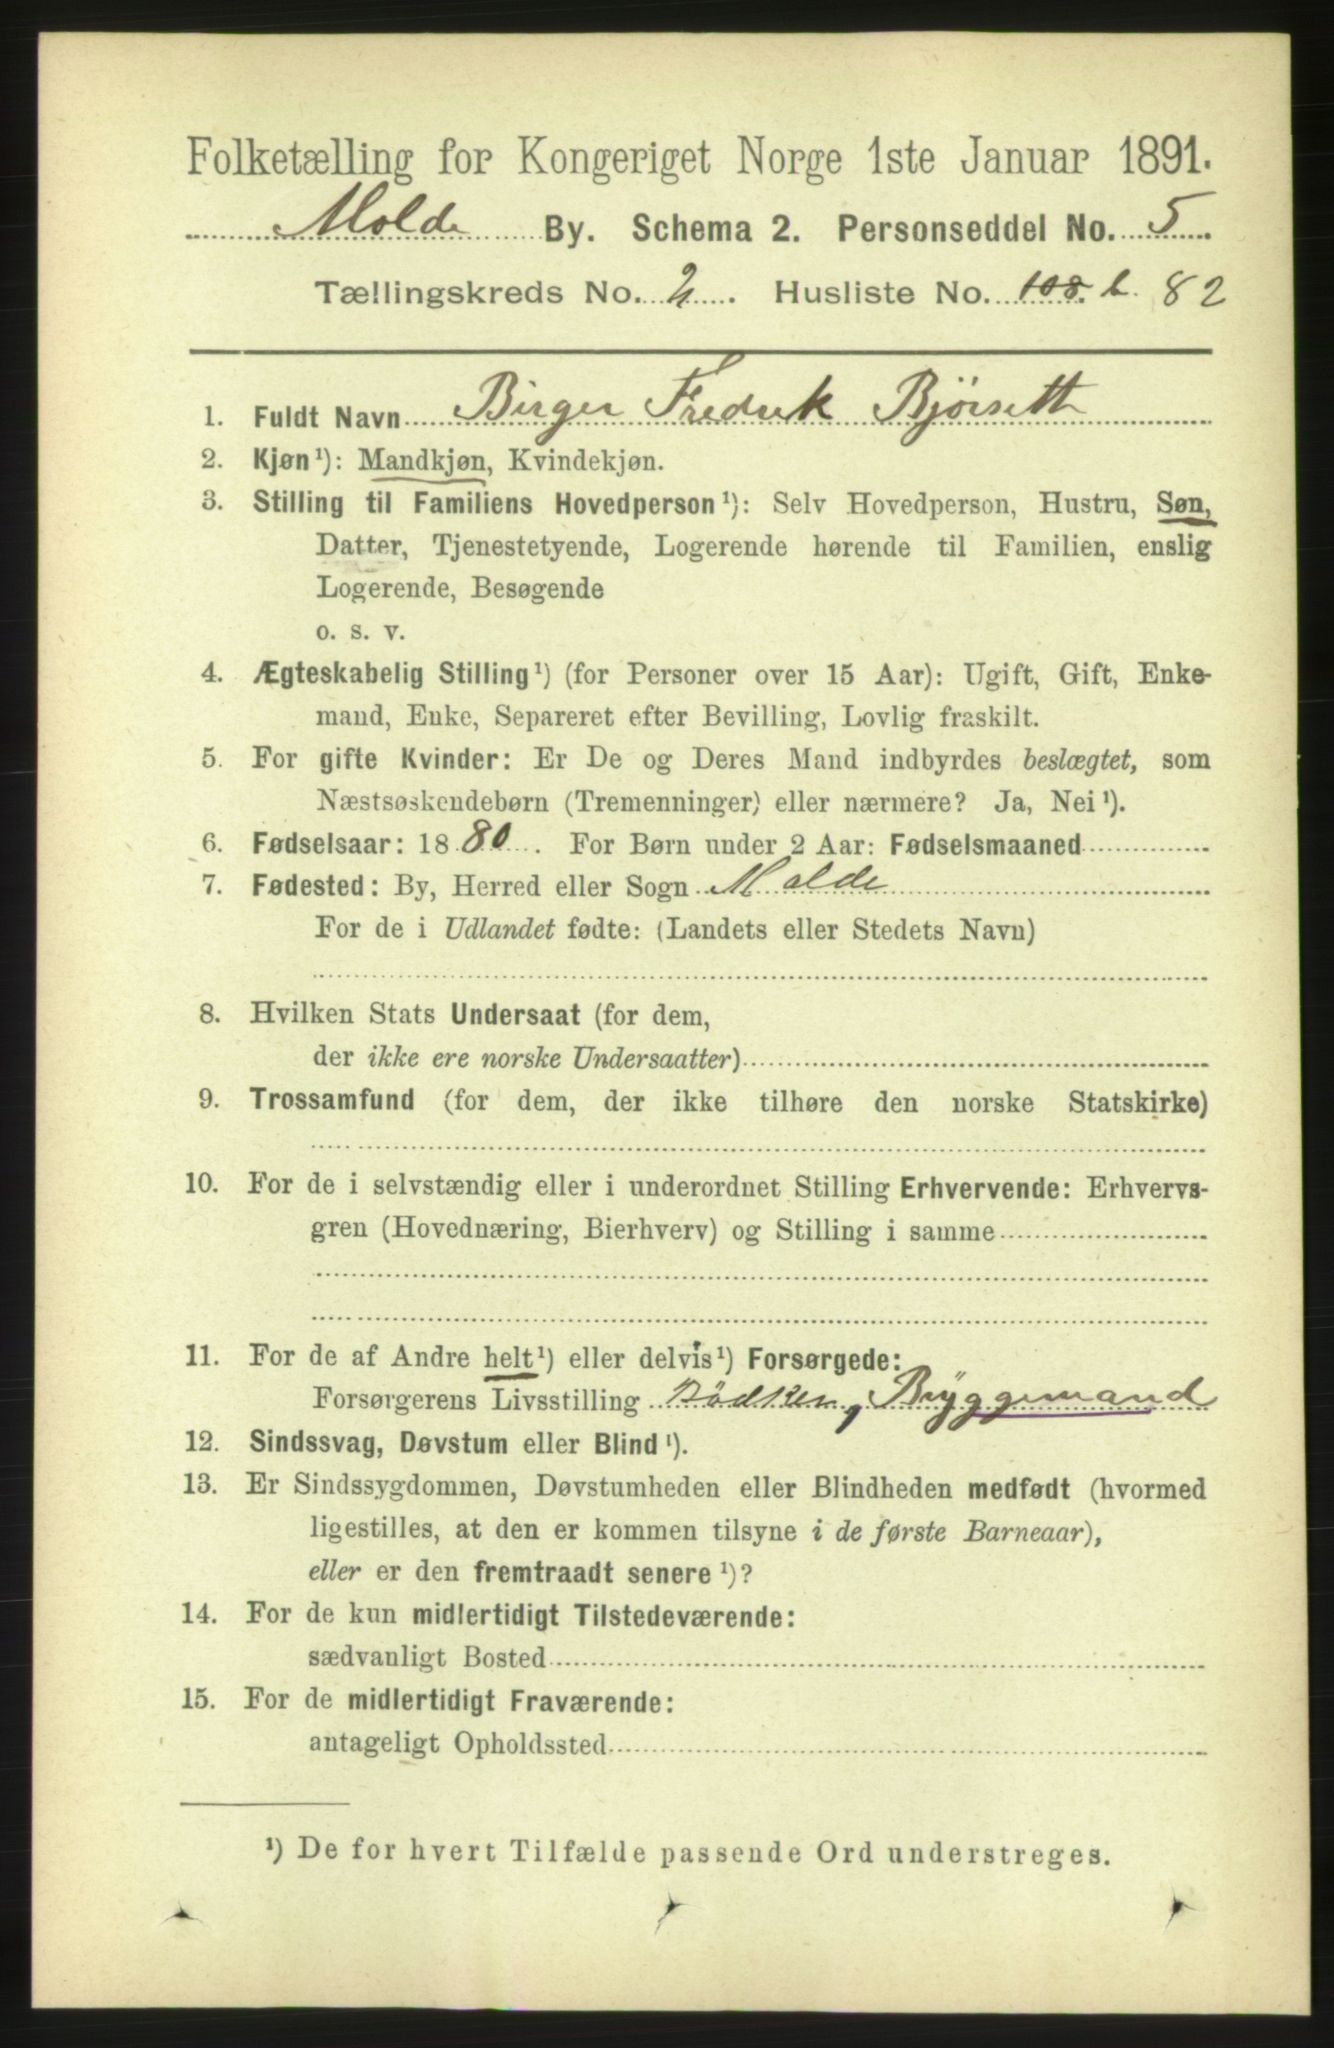 Folketælling for Kongeriget Norge 1ste Januar 1891.
Molde By. Schema 2. Personseddel No. 5
Tællingskreds No. 2. Husliste No. 108. b. 82
1. Fuldt Navn Birger Fredrik Bjørsett
2. Kjøn¹): Mandkjøn, Kvindekjøn.
3. Stilling til Familiens Hovedperson¹): Selv Hovedperson, Hustru, Søn,
Datter, Tjenestetyende, Logerende hørende til Familien, enslig
Logerende, Besøgende
o. s. v.
4. Ægteskabelig Stilling¹) (for Personer over 15 Aar): Ugift, Gift, Enke-
mand, Enke, Separeret efter Bevilling, Lovlig fraskilt.
5. For gifte Kvinder: Er De og Deres Mand indbyrdes beslægtet, som
Næstsøskendebørn (Tremenninger) eller nærmere? Ja, Nei¹).
6. Fødselsaar: 1880. For Børn under 2 Aar: Fødselsmaaned
7. Fødested: By, Herred eller Sogn Molde
For de i Udlandet fødte: (Landets eller Stedets Navn)
8. Hvilken Stats Undersaat (for dem,
der ikke ere norske Undersaatter)
9. Trossamfund (for dem, der ikke tilhøre den norske Statskirke)
10. For de i selvstændig eller i underordnet Stilling Erhvervende: Erhvervs-
gren (Hovednæring, Bierhverv) og Stilling i samme
11. For de af Andre helt¹) eller delvis¹) Forsørgede:
Forsørgerens Livsstilling Bødker, Bryggemand
12. Sindssvag, Døvstum eller Blind¹).
13. Er Sindssygdommen, Døvstumheden eller Blindheden medfødt (hvormed
ligestilles, at den er kommen tilsyne i de første Barneaar),
eller er den fremtraadt senere¹)?
14. For de kun midlertidigt Tilstedeværende:
sædvanligt Bosted
15. For de midlertidigt Fraværende:
antageligt Opholdssted
¹) De for hvert Tilfælde passende Ord understreges.